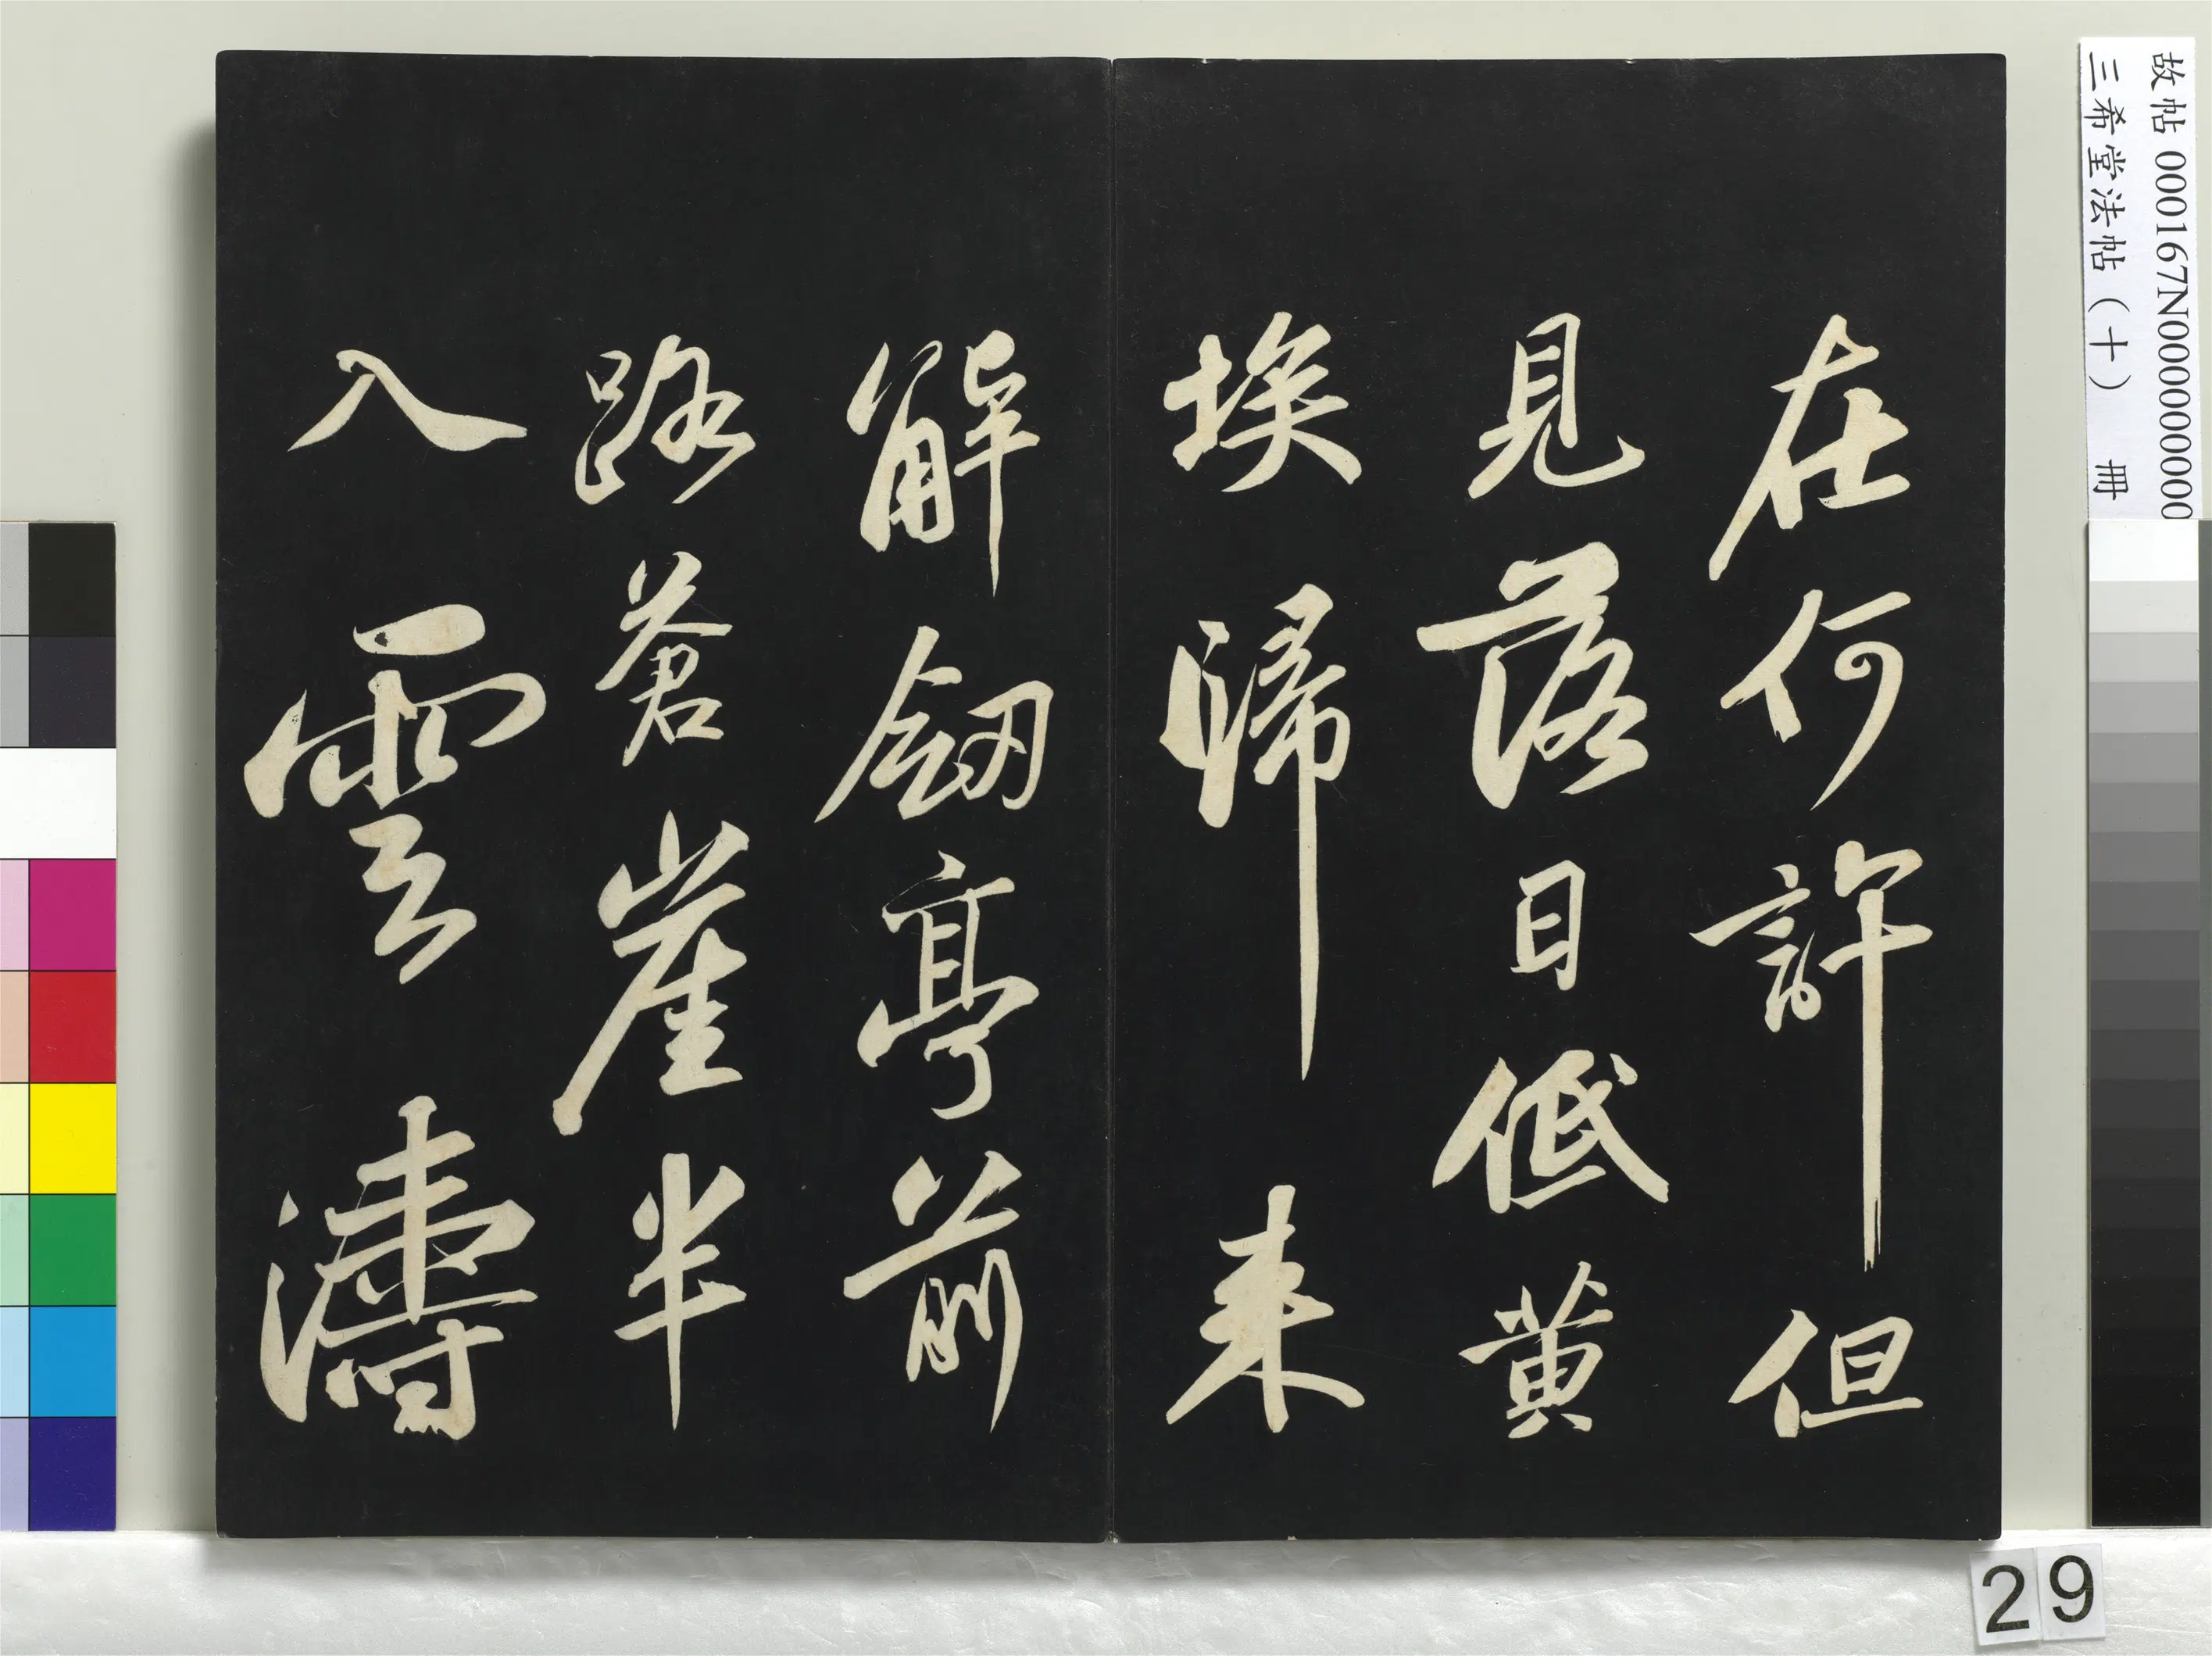 故帖 000167N000000000
三希堂法帖（十） 冊
在何許但
見落日低黄
埃歸来
解劔亭前
路蒼崖半
入雲濤
29